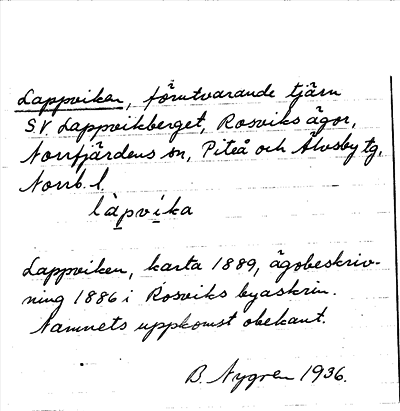 Lappviken, förutvarande tjärn
SV Lappvikberget, Rosviks ägor,
Norrfjärdens sn, Piteå och Älvsby tg,
Norrb. l.
làpvíka
Lappviken, karta 1889, ägobeskriv-
ning 1886 i Rosviks byaskrin.
Namnets uppkomst obekant.
B. Nygren 1936.